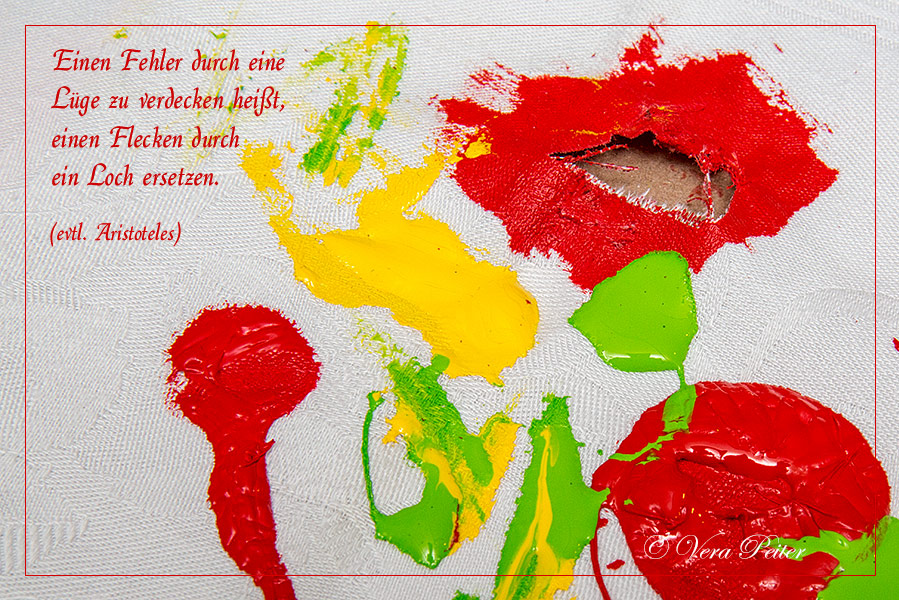 Einen Fehler durch eine
Lüge zu verdecken heißt,
einen Flecken durch
ein Loch ersetzen.
(evtl. Aristoteles)
© Vera Peiter